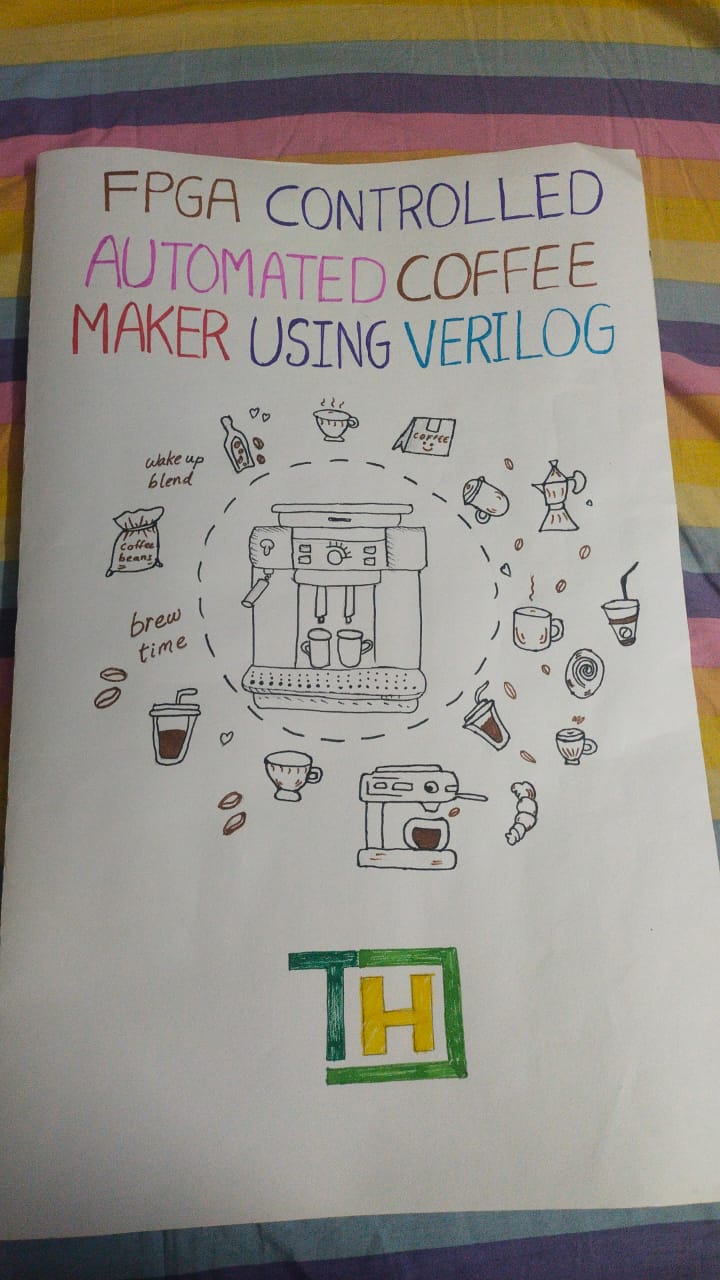 FPGA CONTROLLED
AUTOMATED COFFEE
MAKER USING VERILOG
COFFEE
wake up
blend
coffee
beans
brew
time
TH